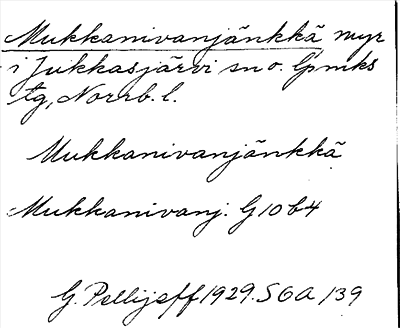 Mukkanivanjänkkä myr
i Jukkasjärvi sn o. lpmks
tg, Norrb. l.
Mukkanivanjänkkä
Mukkanivanj. G10b4
G. Pellijeff 1929. SOA /39